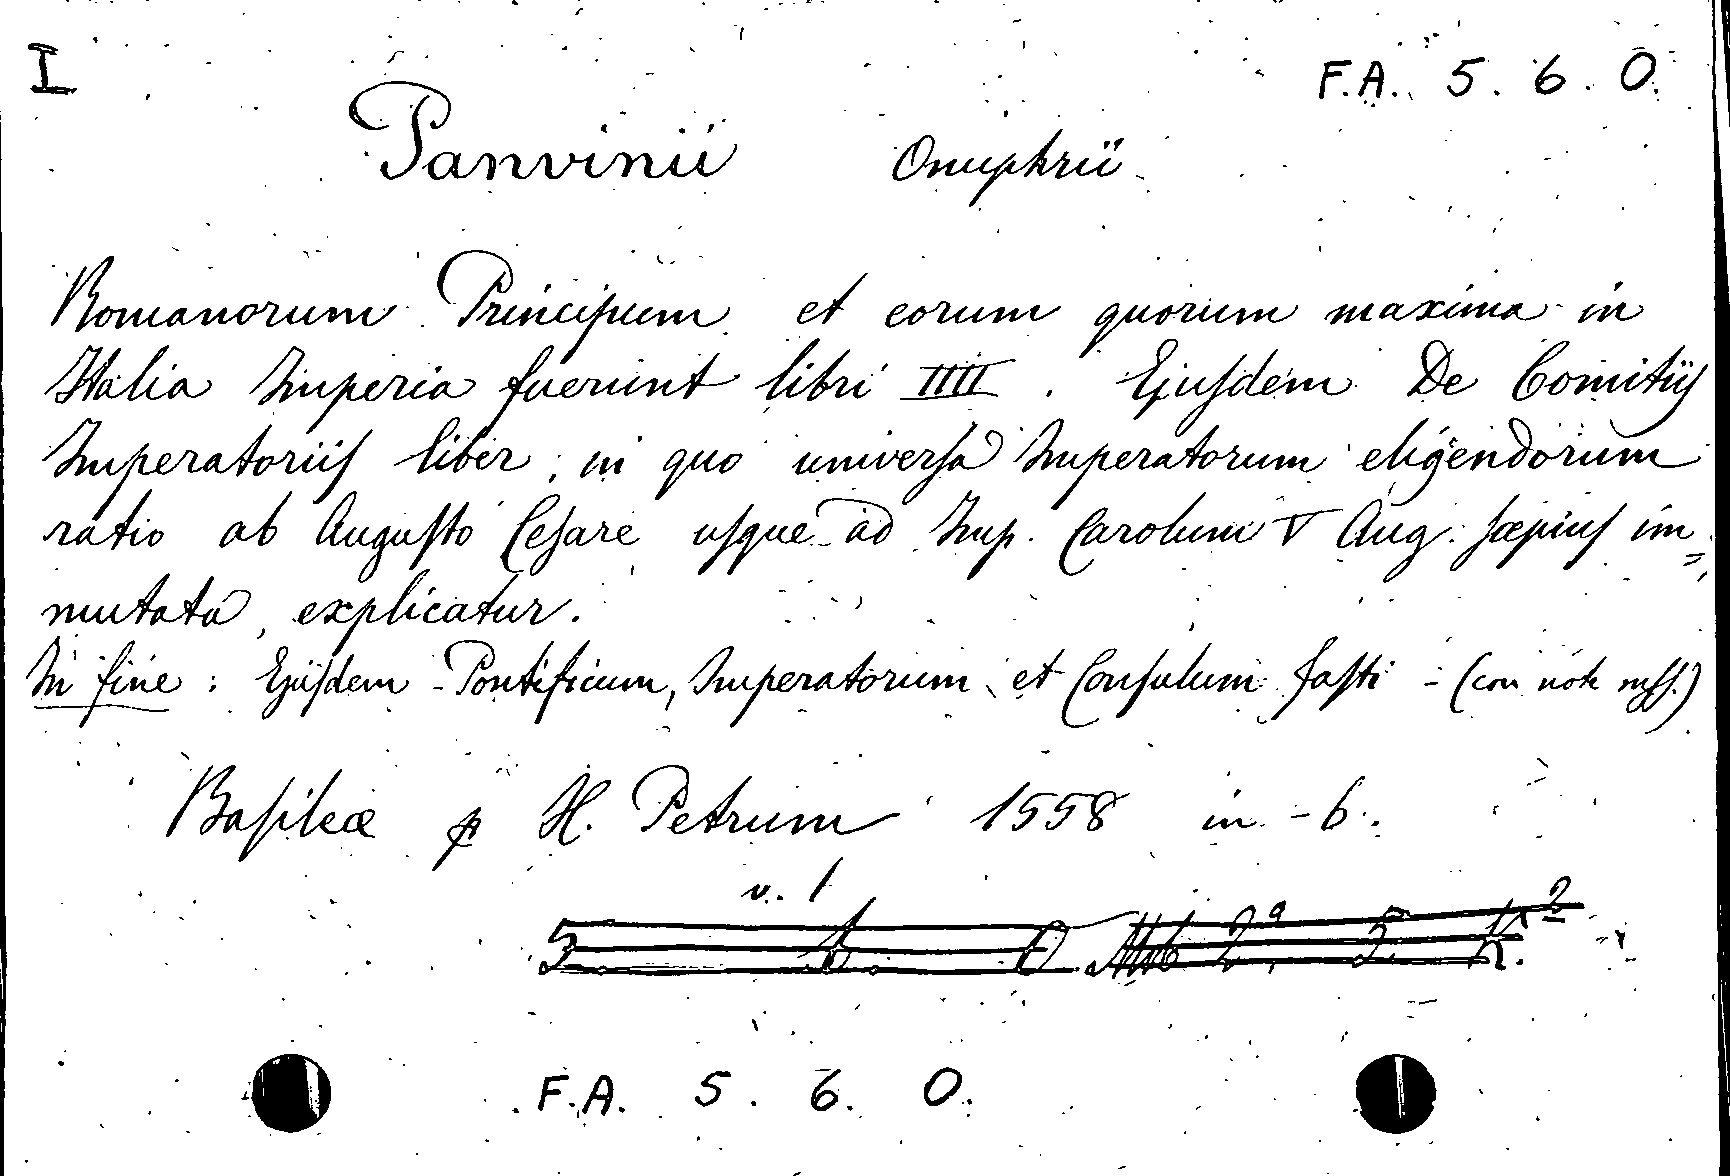 I
F.A. 5. 6. O.
Panvinii Onuphrii
Romanorum Principum et eorum quorum maxima in
Italia Imperia fuerunt libri IIII. Ejusdem De Comitiis
Imperatoriis liber, in quo universa Imperatorum eligendorum
ratio ab Augusto Cesare usque ad Imp. Carolum V Aug. sæpius im=
mutata, explicatur.
In fine: Ejusdem - Pontificum, Imperatorum et Consulum fasti - (con note mss.)
Basileæ p H. Petrum 1558 in-6.
v. 1
F.A. 5. 6. O.